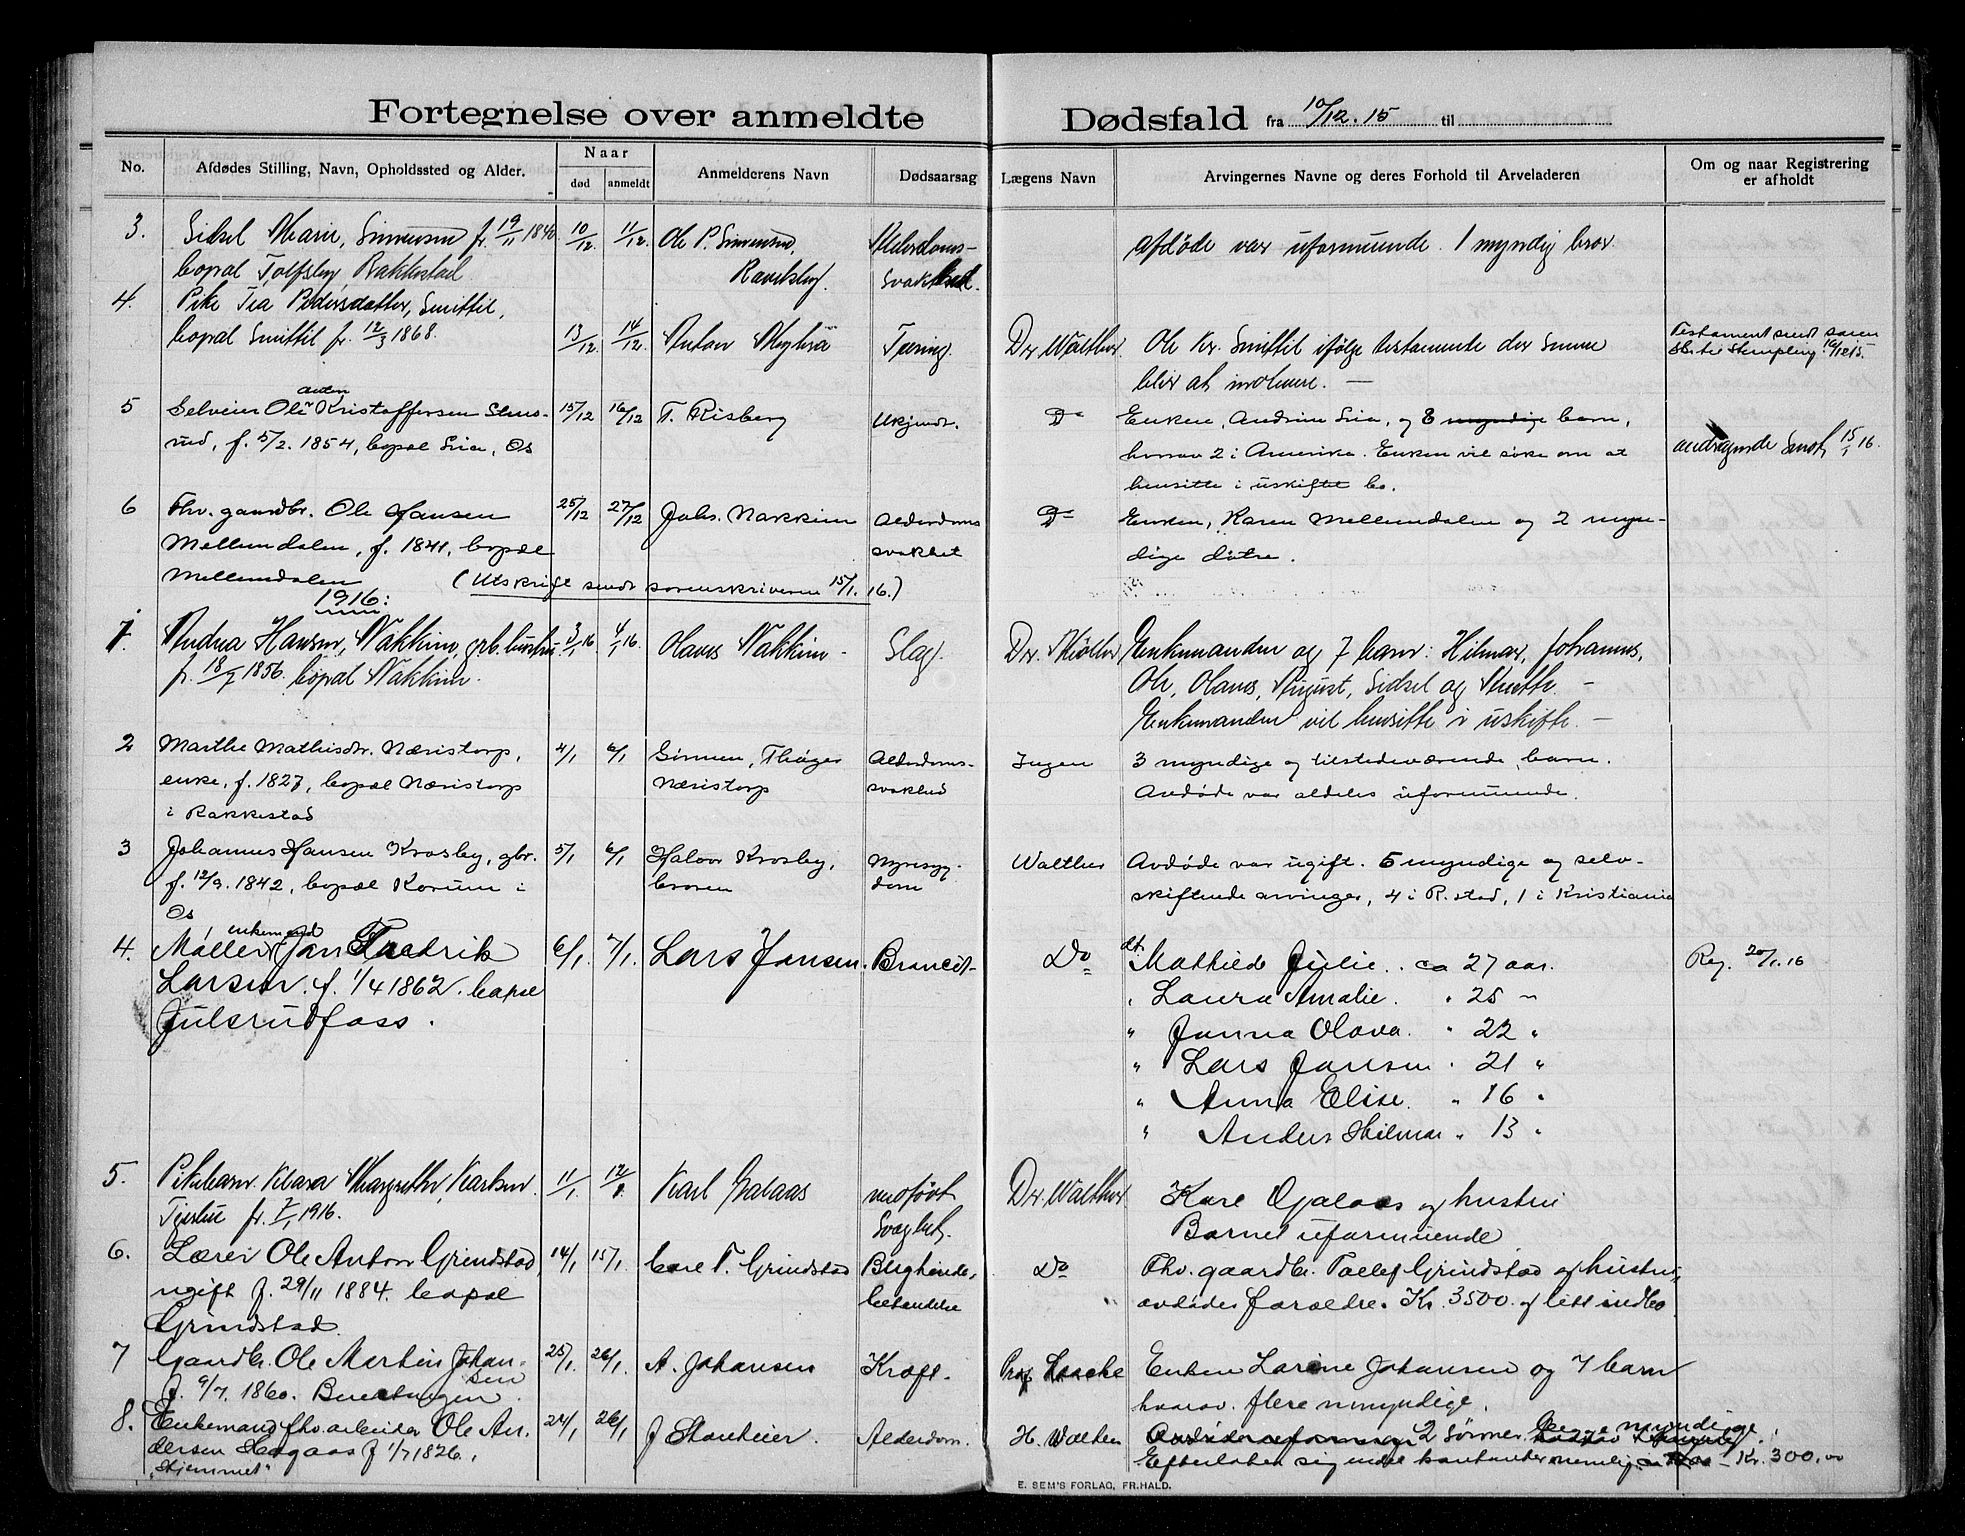 Fortegnelse over anmeldte Dødsfald fra 10/12.15 til
No. Afdødes Stilling, Navn, Opholdssted og Alder. Naar død anmeldt Anmelderens Navn Dødsaarsag Lægens Navn Arvingernes Navne og deres Forhold til Arveladeren Om og naar Registrering er afholdt
3. Sidsel Marie Simensen f. 19/11 1840 10/12 11/12. Ole P. Simensen, Alderdoms- Afdøde var uformuende. 1 myndig bror
bopæl Tolfsby Rakkestad Svakhed.
4. Pike Tea Pedersdatter, Smittil,
bopæl Smittil f. 12/3 1868. 13/12. 14/12. Anton Tæring. Dr. Walther. Ole Kr. Smittil ifølge testamente der senere Testament sendt soren
blir at indlevere. — skr. til Stempling 16/12 15.
5 Selveier Ole Kristoffersen Stens- 15/12 16/12 T. Risberg Ukjendt. Do Enken, Andrine Lia, og 8 myndige barn,
rud, f. 5/2. 1854, bopæl Lia, Os hvorav 2 i Amerika. Enken vil søke om at andragende sendt 15/1 16.
hensitte i uskiftet bo.
6 Fhv. gaardbr. Ole Hansen 25/12 27/12 Johs. Nakkim Alderdoms Do Enken, Karen Mellemdalen og 2 myn-
Mellemdalen, f. 1841, bopæl svakhet dige døtre.
Mellemdalen (Utskrift sendt sorenskriveren 15/1. 16.)
1916:
1. Andrea Hansen, Nakkim, grb. hustru 3/1 16 4/1 16 Olaves Nakkim - Slag. Dr. Møller Enkemanden og 7 barn: Hilmar, Johannes,
f. 18/7 1856. bopæl Nakkim. Ole, Olaves, August, Sidsel og Anette. -
Enkemanden vil hensitte i uskifte. -
2 Marthe Mathisdtr. Næristorp, 4/1 6/1 Sønnen, Thøger Alderdoms- Ingen 3 myndige og tilstedeværende barn.
enke, f. 1827, bopæl Næristorp Næristorp svakhed Avdøde var aldeles uformuende.
i Rakkestad
3 Johannes Hansen Krosby, gbr. 5/1 6/1 Halvor Krosby, Nyresyg- Walther Avdøde var ugift. 5 myndige og selv-
f. 12/9. 1842, bopæl Korum i broren dom skiftende arvinger, 4 i R.stad, 1 i Kristiania
Os
4. Møller enkemand Jan Fredrik 6/1 7/1. Lars Jansen. Do dt. Mathilde Julie. ca 27 aar. Reg. 20/1.16
Larsen. f. 1/4 1862. bopæl " Laura Amalie. " 25 "
Julsrudfoss. " Janna Olava. " 22 "
" Lars Jansen " 21 "
" Anna Elise. " 16 "
" Anders Hilmar " 13 "
5. Pikebarn Klara Margrethe Karlsen. 11/1. 12/1. Karl Galaas medfødt Dr. Walther Karl Galaas og hustru
f. 7/1 1916. Svaghet. Barnet uformuende
6. Lærer Ole Anton Grindstad, 14/1 15/1. T. Grindstad Blyghinde- Do Fhv. gaardbr. Tollef Grindstad og hustru,
ugift f. 29/11 1884. bopæl betændelse avdødes forældre. Kr. 3500. og litt indbo
Grindstad.
7 Gaardbr. Ole Martin Johan- 25/1. 26/1. A. Johansen Kræft. Prof. Laache Enken Larine Johansen og 7 barn
sen f. 9/7. 1860. hvorav flere umyndige.
8. Enkemand fhv. arbeider Ole An- 24/1 26/1 J Stenheier. Alderdom. H. Walther 2 sønner begge myndige.
dersen Haagaas f 1/7 1826., Efterlater sig intet kontanter nemlig Kr. 300,00
"Hjemmet"
E. SEM'S FORLAG, FR.HALD.